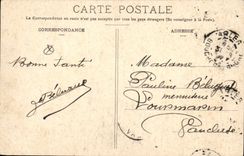 CARTE POSTALE
(La Correspondance au recto n'est pas acceptée par tous les pays étrangers (Se renseigner à la Poste).
CORRESPONDANCE
ADRESSE
Bonne Santé
Madame
Pauline
menuiserie
Lourmarin
Vaucluse